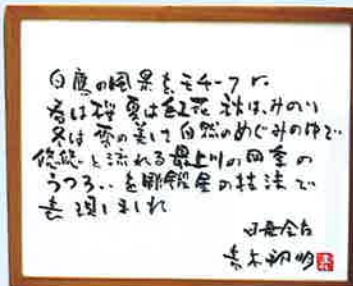 白鷹の風景をモチーフに
春は桜 夏は紅花 秋は、みのり
冬は雪の美しさ自然のめぐみの中で
悠悠と流れる最上川の四季の
うつろいを彫鍛金の技法で
表現しました